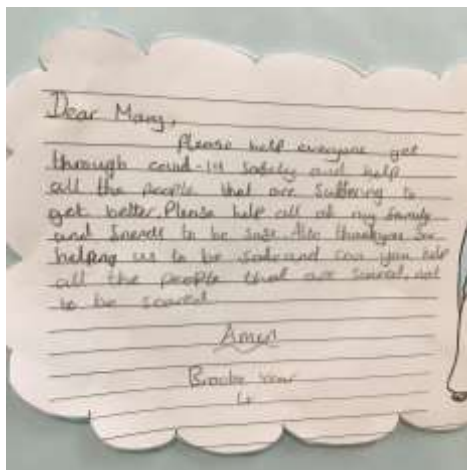 Dear Mary,
Please help everyone get
through covid-19 safely and help
all the people that are suffering to
get better. Please help all of my family
and friends to be safe. Also thankyou for
helping us to be safe and can you help
all the people that are scared, not
to be scared
Amen
Year
4